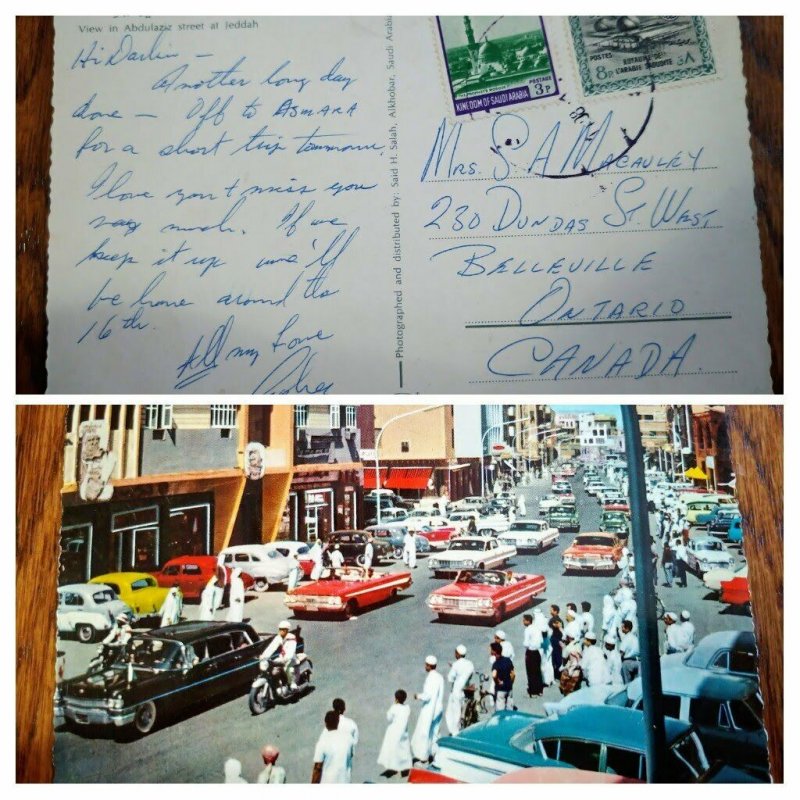 View in Abdulaziz street at Jeddah
Hi Darlin –
Another long day
done – Off to ASMARA
for a short trip tommorow.
I love you & miss you
very much. If we
keep it up we'll
be home around the
16th.
All my Love
Photographed and distributed by: Said H. Salah, Alkhobar, Saudi Arabia
POSTAGE
KINGDOM OF SAUDI ARABIA 3P
POSTES
ROYAUME DE
8P L'ARABIE SOUDITE ٨٣
MRS. S. A MACAULEY
230 DUNDAS ST. WEST
BELLEVILLE
ONTARIO
CANADA.